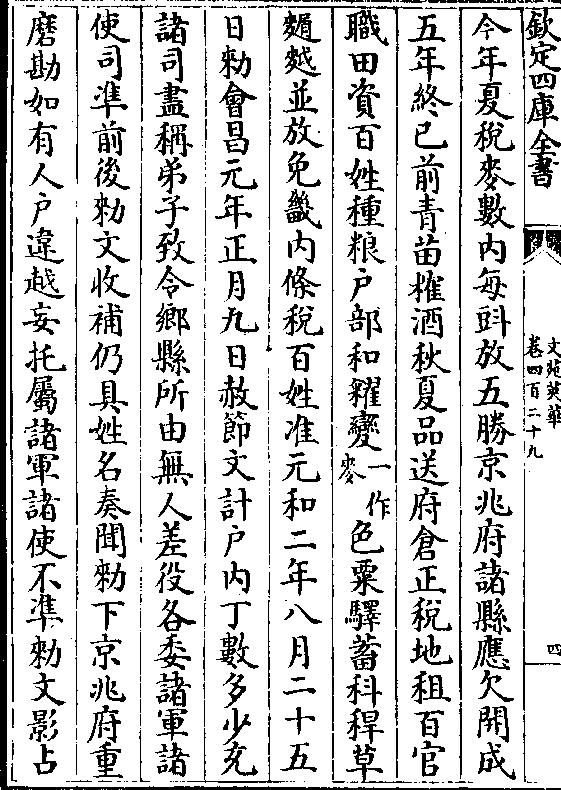 欽定四庫全書
文苑英華
卷四百二十九
四
今年夏稅麥數內每㪷放五勝京兆府諸縣應欠開成
五年終已前青苗榷酒秋夏品送府倉正稅地租百官
職田資百姓種粮户部和糴變一作麥色粟驛蓄科稈草
麵麨並放免畿內條稅百姓准元和二年八月二十五
日勑會昌元年正月九日赦節文計户內丁數多少充
諸司盡稱弟子致令鄉縣所由無人差役各委諸軍諸
使司準前後勑文收補仍具姓名奏聞勑下京兆府重
磨勘如有人户違越妄托屬諸軍諸使不準勑文影占